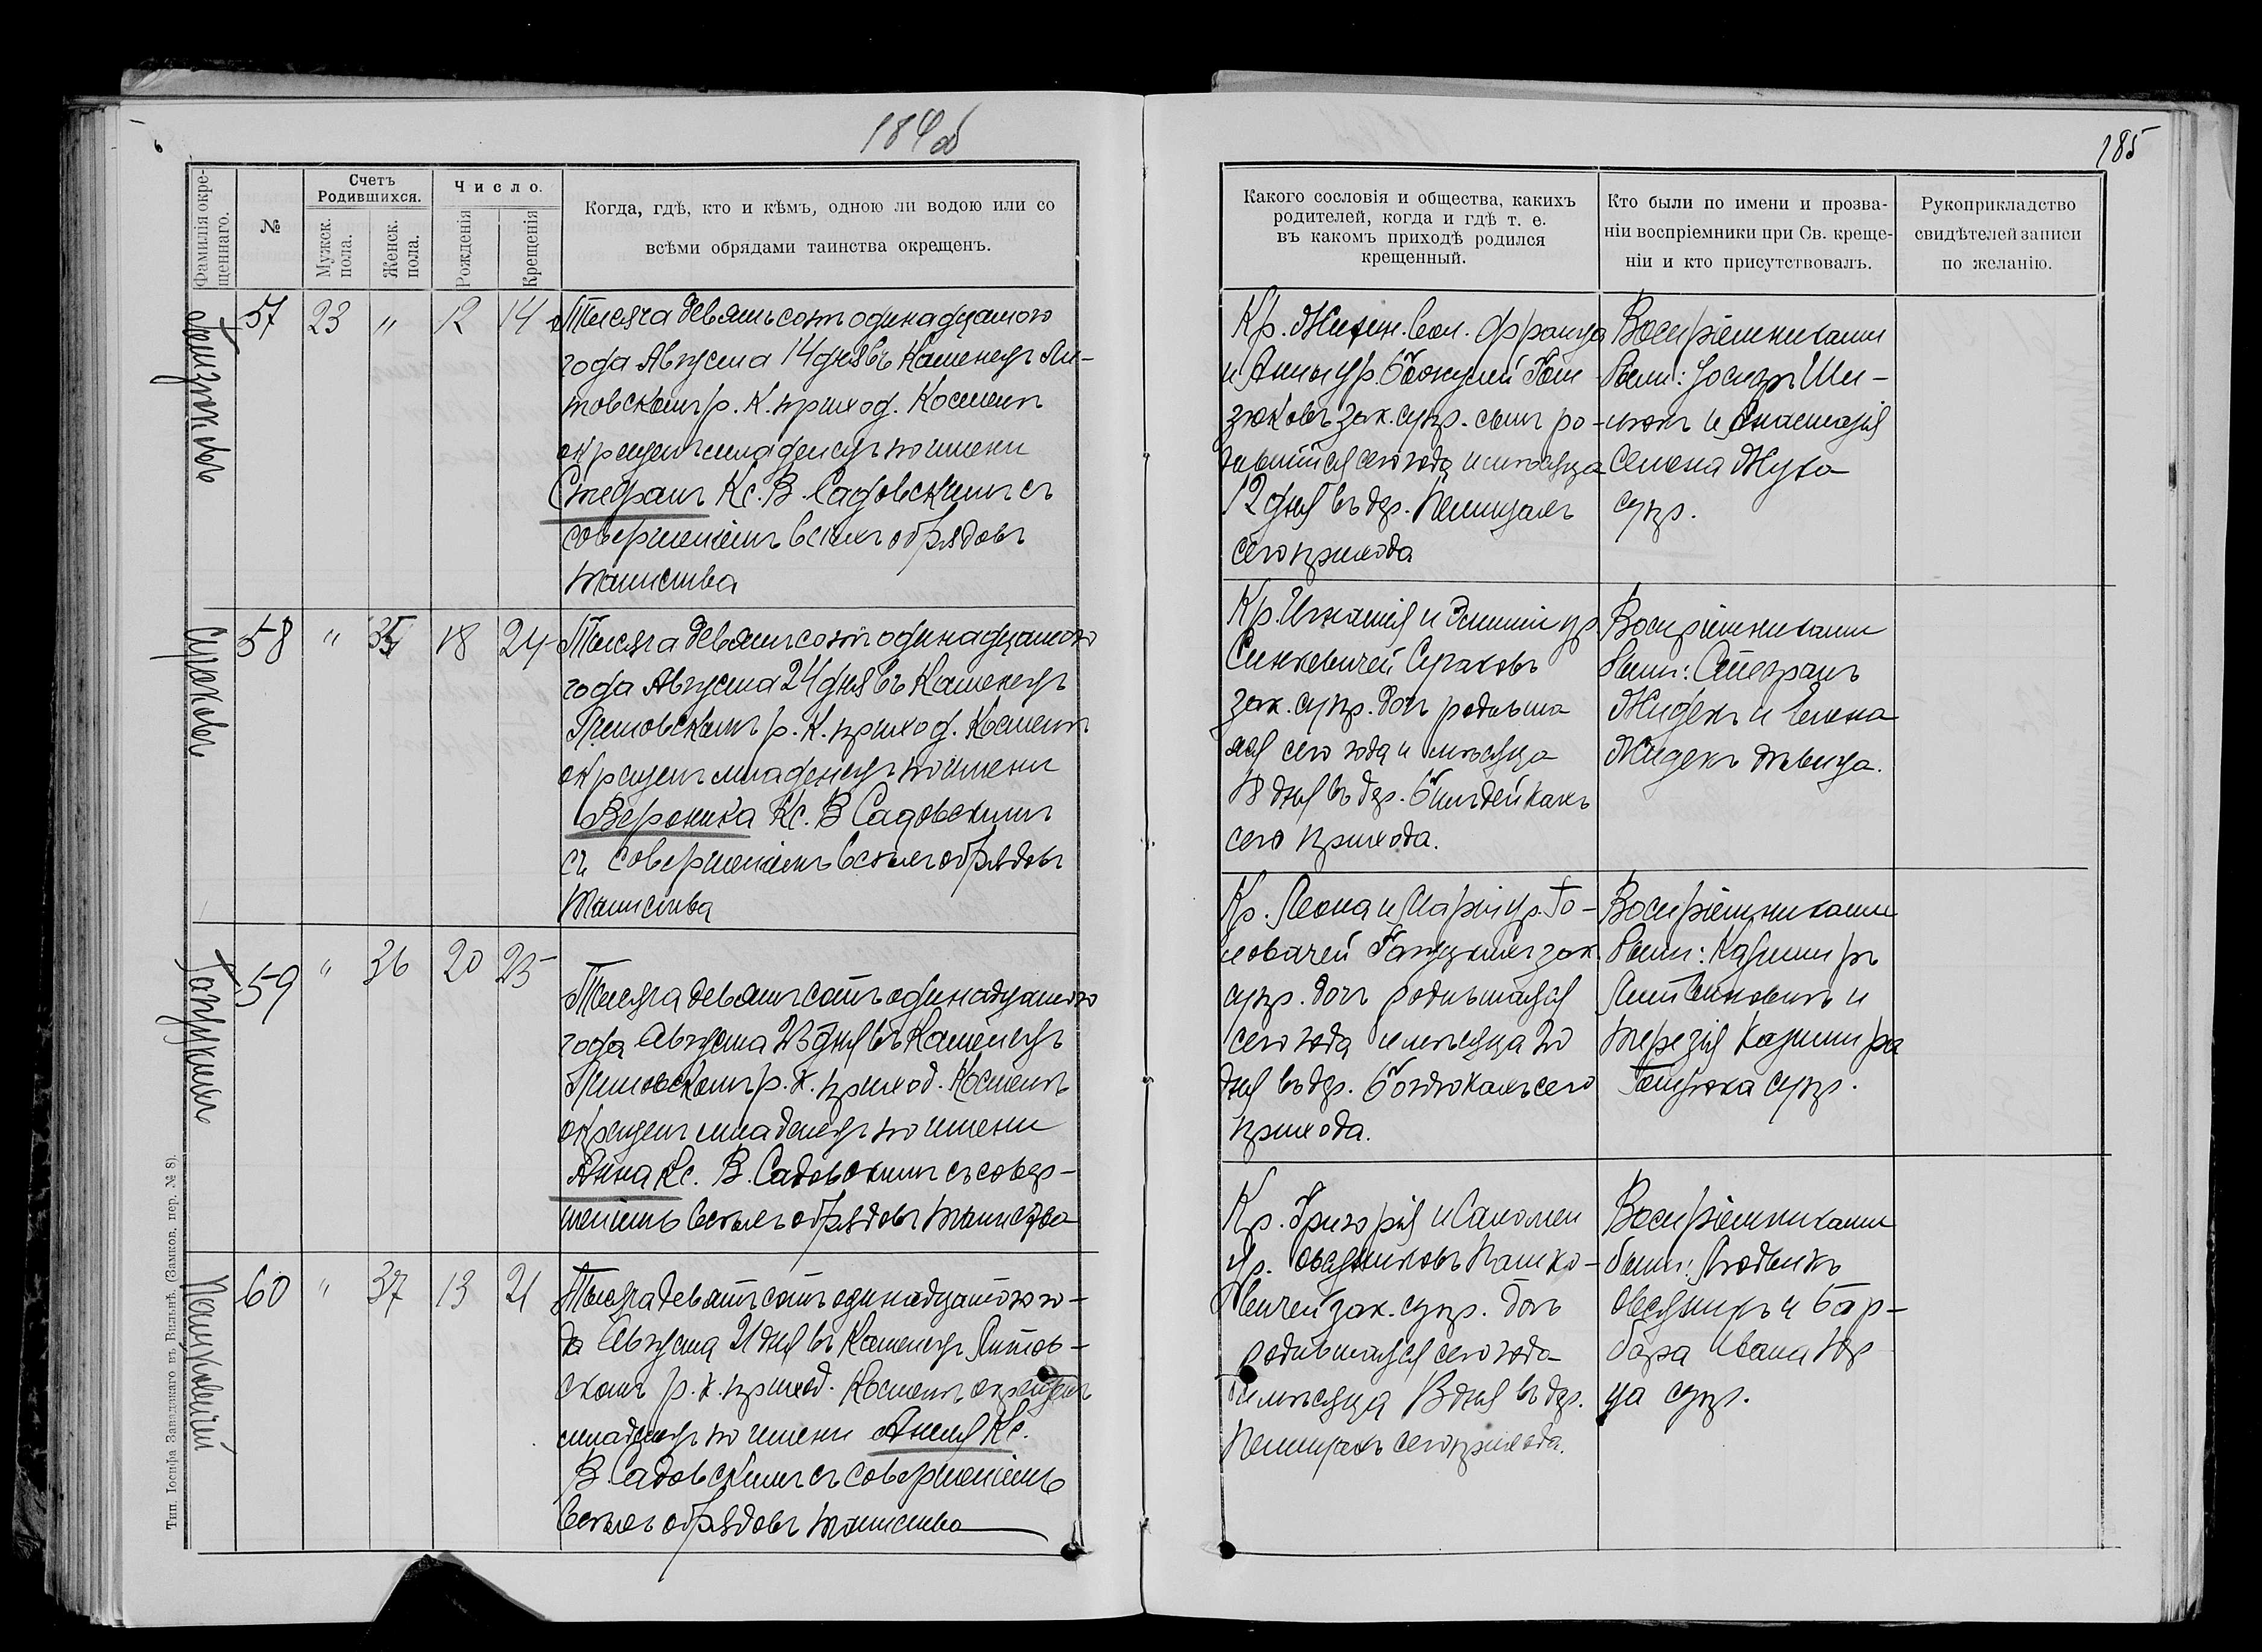 184 об
185
Фамилія окре-
щеннаго.
№
Счетъ
Родившихся.
Мужск.
пола.
Женск.
пола.
Число.
Рожденія
Крещенія
Когда, гдѣ, кто и кѣмъ, одною ли водою или со
всѣми обрядами таинства окрещенъ.
Какого сословія и общества, какихъ
родителей, когда и гдѣ т. е.
въ какомъ приходѣ родился
крещенный.
Кто были по имени и прозва-
ніи воспріемники при Св. креще-
ніи и кто присутствовалъ.
Рукоприкладство
свидѣтелей записи
по желанію.
57 23 " 12 14
Тысяча девятьсотъ одинадцатого
года Августа 14 дня въ Каменецъ Ли-
товскомъ р. К. приход. Костелѣ
окрещенъ младенецъ по имени
Стефанъ Кс. В. Садовскимъ съ
совершеніемъ всѣхъ обрядовъ
таинства
Кр. вол. Франца
и Анны ур.
зюковъ зак. супр. сынъ ро-
дившійся сего года и мѣсяца
12 дня въ дер. Пелищахъ
сего прихода
Воспріемниками
были: Іосифъ Ши-
и Анастазія
Семена Жука
супр.
58 " 35 18 24
Тысяча девятьсотъ одинадцатого
года Августа 24 дня въ Каменецъ
Литовскомъ р. К. приход. Костелѣ
окрещенъ младенецъ по имени
Вероника Кс. В Садовскимъ
съ совершеніемъ всѣхъ обрядовъ
таинства
Кр. Игнатія и ур
Синкевичей
зак. супр. дочь родивша
яся сего года и мѣсяца
18 дня въ дер.
сего прихода.
Воспріемниками
были: Стефанъ
Жидекъ и Елена
Жидекъ дѣвица.
59 " 36 20 23
Тысяча девятьсотъ одинадцатого
года Августа 23 дня въ Каменецъ
Литовскомъ р. К. приход. Костелѣ
окрещенъ младенецъ по имени
Анна Кс. В. Садовскимъ съ совер-
шеніемъ всѣхъ обрядовъ таинства
Кр. Леона и Маріи ур. Го-
ловачей зак.
супр. дочь родившаяся
сего года и мѣсяца 20
дня въ дер. сего
прихода.
Воспріемниками
были: Казимиръ
Литвиновичъ и
Терезія Казимира
супр.
Пашкевичей
60 " 37 13 21
Тысяча девятьсотъ одинадцатого го-
да Августа 21 дня въ Каменецъ Литов-
скомъ р. К. приход. Костелѣ окрещенъ
младенецъ по имени Анеля Кс.
В Садовскимъ съ совершеніемъ
всѣхъ обрядовъ таинства
Кр. Григорія и Саломеи
ур. Овсянниковъ Пашке-
вичей зак. супр. дочь
родившаяся сего года
и мѣсяца 13 дня въ дер.
Пелищахъ сего прихода.
Воспріемниками
были: Людвикъ
Овсянникъ и Бар-
бара Ивана
супр.
Тип. Іосифа Завадзкаго въ Вильнѣ, (Замков. пер. № 8).